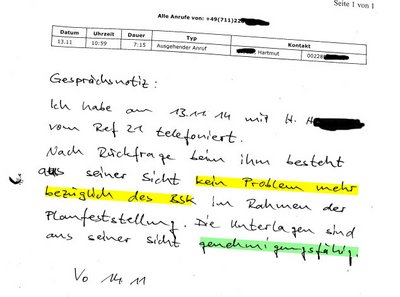 Seite 1 von 1
Alle Anrufe von: +49(711)22
Datum Uhrzeit Dauer Typ Kontakt
13.11 10:59 7:15 Ausgehender Anruf Hartmut 00228
Gesprächsnotiz:
Ich habe am 13.11.14 mit H. H
vom Ref 21 telefoniert.
Nach Rückfrage beim ihm besteht
aus seiner Sicht kein Problem mehr
bezüglich des BSK im Rahmen der
Planfeststellung. Die Unterlagen sind
aus seiner Sicht genehmigungsfähig.
Vo 14.11